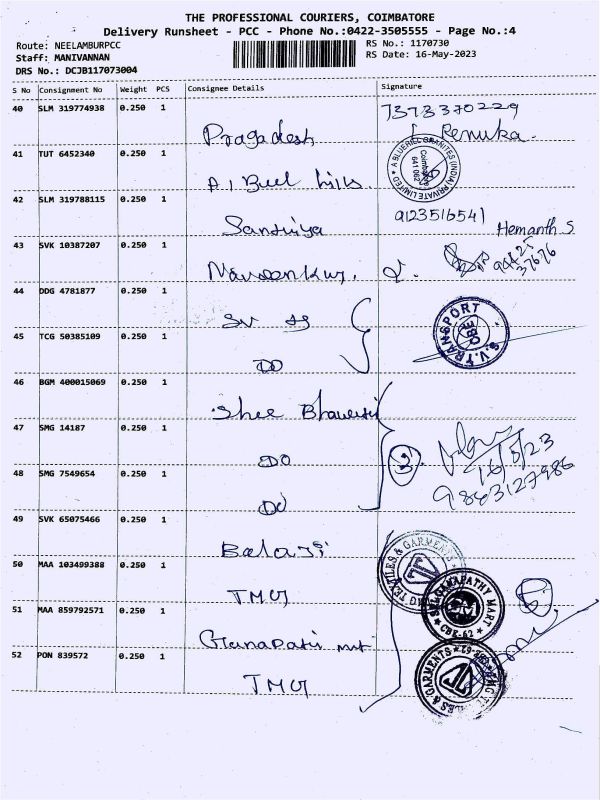 THE PROFESSIONAL COURIERS, COIMBATORE
Delivery Runsheet - PCC - Phone No.:0422-3505555 - Page No.:4
Route: NEELAMBURPCC
RS No.: 1170730
Staff: MANIVANNAN
RS Date: 16-May-2023
DRS No.: DCJB117073004
S No Consignment No Weight PCS Consignee Details Signature
40 SLM 319774938 0.250 1 Pragadesh 7373370229 Renuka.
41 TUT 6452340 0.250 1 A BLUERIEL GRANITES (INDIA) PRIVATE LIMITED Coimbatore 641 062
42 SLM 319788115 0.250 1 9123516541 Hemanth S
43 SVK 10387207 0.250 1 94425 37676
44 DDG 4781877 0.250 1 S.V. TRANSPORT CBE
45 TCG 50385109 0.250 1 DO
46 BGM 400015069 0.250 1 Shee
47 SMG 14187 0.250 1 DO 3. 16/5/23
48 SMG 7549654 0.250 1 DO 9843127986
49 SVK 65075466 0.250 1 Balaji
50 MAA 103499388 0.250 1 TMG TEXTILES & GARMENTS
51 MAA 859792571 0.250 1 Ganapathi mrt GANAPATHY MART CBE-62
52 PON 839572 0.250 1 TMG TMG TEXTILES & GARMENTS CBE-62